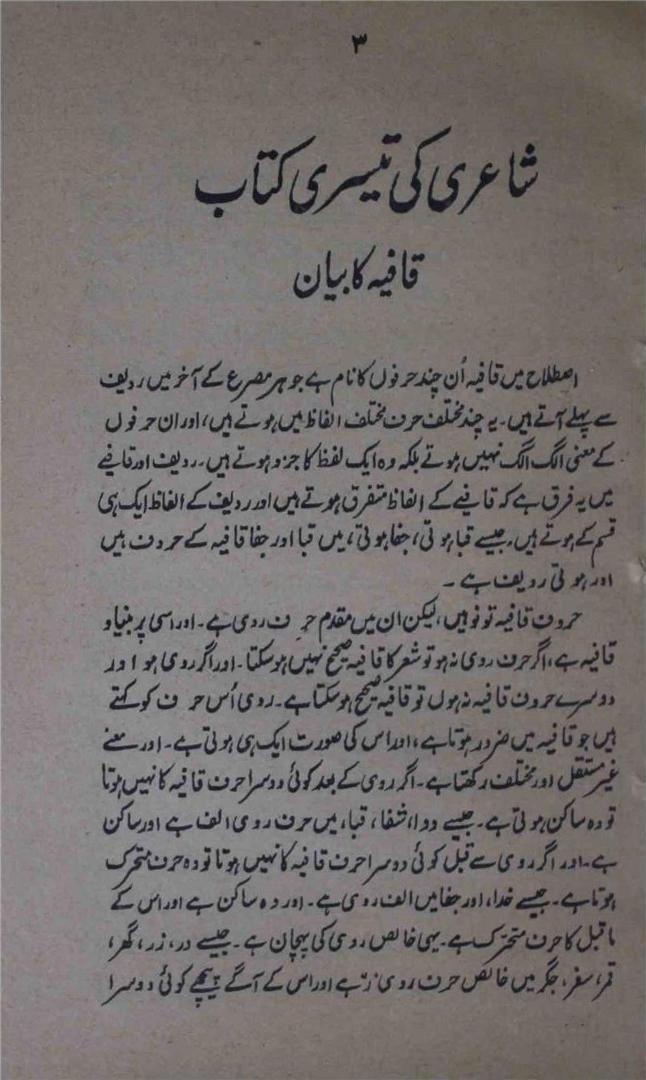 ۳
شاعری کی تیسری کتاب
قافیہ کا بیان
اصطلاح میں قافیہ اُن چند حرفوں کا نام ہے جو ہر مصرع کے آخر میں ردیف
سے پہلے آتے ہیں۔ یہ چند مختلف حرف مختلف الفاظ میں ہوتے ہیں، اور ان حرفوں
کے معنی الگ الگ نہیں ہوتے بلکہ وہ ایک لفظ کا جزو ہوتے ہیں۔ ردیف اور قافیے
میں یہ فرق ہے کہ قافیے کے الفاظ متفرق ہوتے ہیں اور ردیف کے الفاظ ایک ہی
قسم کے ہوتے ہیں۔ جیسے قبا ہوتی، جفا ہوتی، میں قبا اور جفا قافیہ کے حروف ہیں
اور ہوتی ردیف ہے۔
حروف قافیہ تو نو ہیں، لیکن ان میں مقدم حرف روی ہے۔ اور اسی پر بنیاد
قافیہ ہے، اگر حرف روی نہ ہو تو شعر کا قافیہ صحیح نہیں ہو سکتا۔ اور اگر روی ہو اور
دوسرے حروف قافیہ نہ ہوں تو قافیہ صحیح ہو سکتا ہے۔ روی اُس حرف کو کہتے
ہیں جو قافیہ میں ضرور ہوتا ہے، اور اس کی صورت ایک ہی ہوتی ہے۔ اور معنے
غیر مستقل اور مختلف رکھتا ہے۔ اگر روی کے بعد کوئی دوسرا حرف قافیہ کا نہیں ہوتا
تو وہ ساکن ہوتی ہے۔ جیسے دوا، شفا، قبا، میں حرف روی الف ہے اور ساکن
ہے۔ اور اگر روی سے قبل کوئی دوسرا حرف قافیہ کا نہیں ہوتا تو وہ حرف متحرک
ہوتا ہے۔ جیسے خدا، اور جفا میں الف روی ہے۔ اور وہ ساکن ہے اور اس کے
ماقبل کا حرف متحرّک ہے۔ یہی خالص روی کی پہچان ہے۔ جیسے در، زر، گھر،
قمر، سفر، جگر میں خالص حرف روی ’ر‘ ہے اور اس کے آگے پیچھے کوئی دوسرا